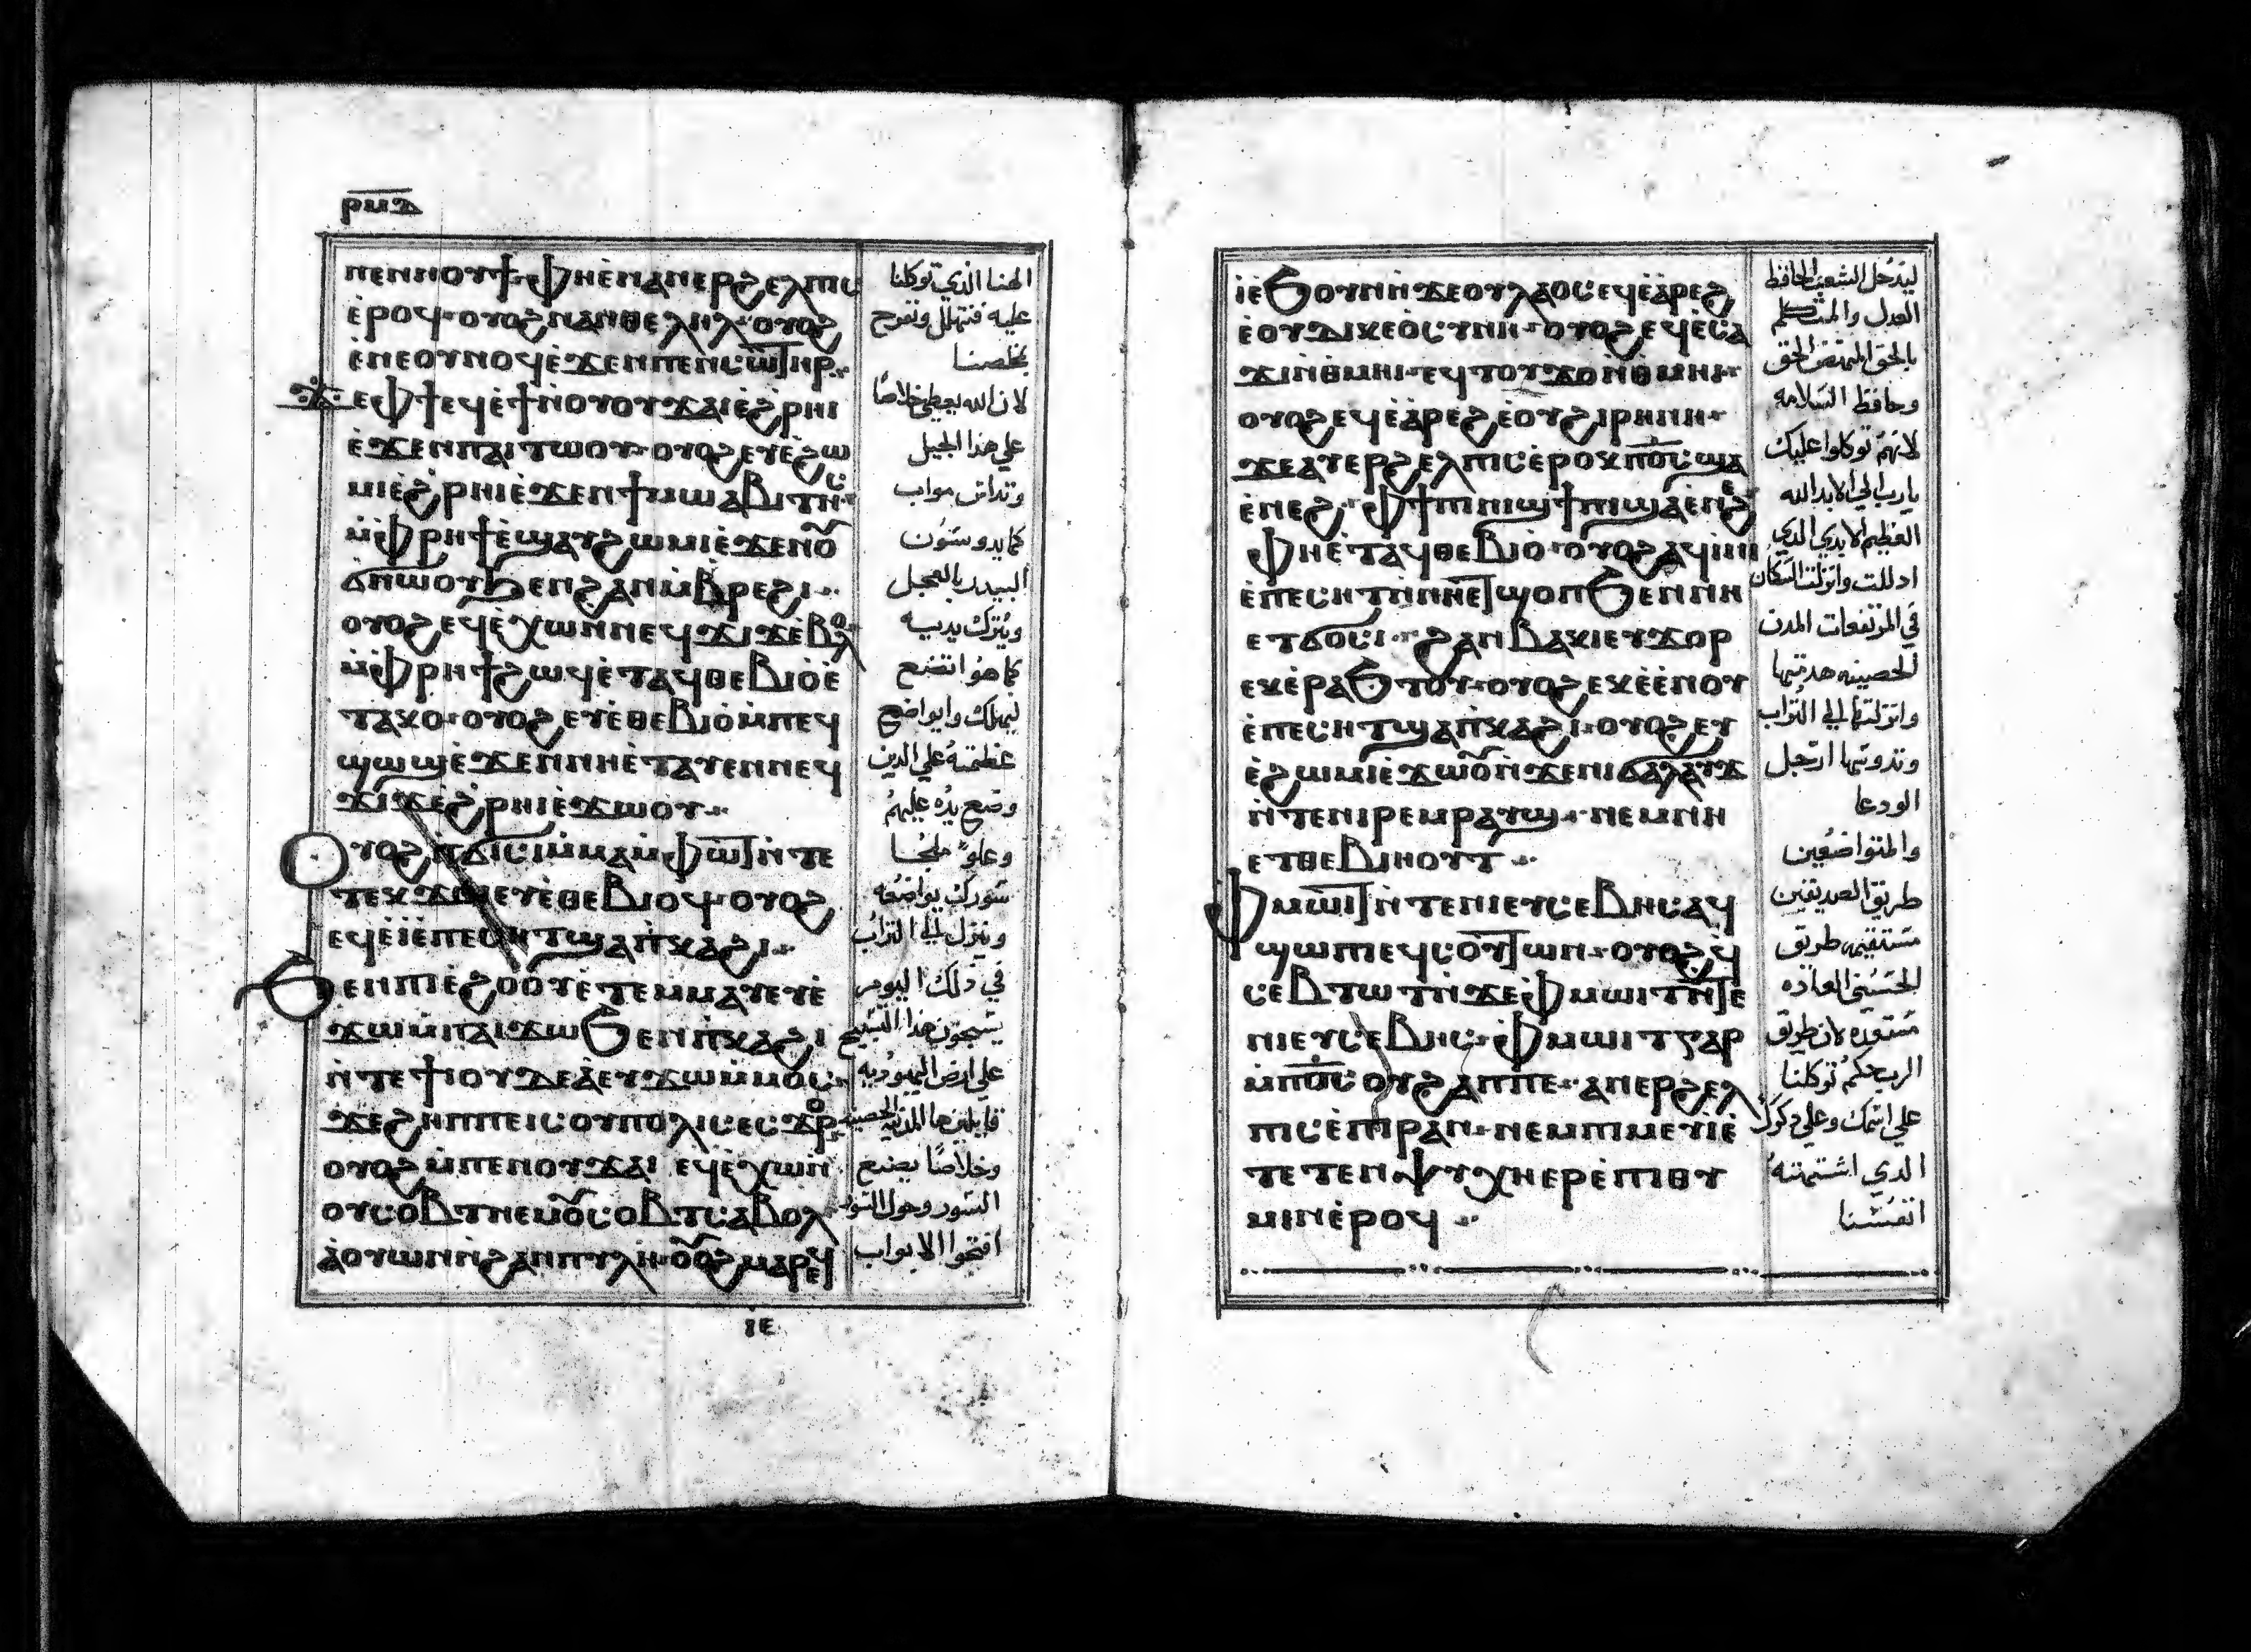 ⲣⲙⲇ
ⲡⲉⲛⲛⲟⲩϯ ⲫⲏⲉⲛⲁⲛⲉⲣϩⲉⲗⲡⲓⲥ
ⲉⲣⲟϥ ⲟⲩⲟϩ ⲛⲁⲛⲑⲉⲗⲏⲗ ⲟⲩⲟϩ
ⲉⲛⲉⲟⲩⲛⲟϥ ⲉϫⲉⲛⲡⲉⲛⲥⲱⲧⲏⲣ
ϫⲉ ⲫϯⲉϥⲉϯⲛⲟⲩⲟⲩϫⲁⲓ ⲉϩⲣⲏⲓ
ⲉϫⲉⲛⲡⲁⲓⲧⲱⲟⲩ ⲟⲩⲟϩ ⲉⲩⲉϩⲱ
ⲙⲓ ⲉϩⲣⲏⲓ ⲉϫⲉⲛϯⲙⲱⲁⲃⲓⲧⲏⲥ
ⲙⲫⲣⲏϯ ⲉϣⲁⲩϩⲱⲙⲓ ⲉϫⲉⲛⲟ
ϭⲛⲱⲟⲩ ϧⲉⲛϩⲁⲛⲙⲃⲣⲉϩⲓ
ⲟⲩⲟϩ ⲉϥⲉⲭⲱ ⲛⲛⲉϥϫⲓϫ ⲉⲃⲟⲗ
ⲙⲫⲣⲏϯ ϩⲱϥ ⲉⲧⲁϥⲑⲉⲃⲓⲟ ⲉ
ⲧⲁⲕⲟ ⲟⲩⲟϩ ⲉⲩⲉⲑⲉⲃⲓⲟ ⲙⲡⲉϥ
ϣⲱϣ ⲉϫⲉⲛⲛⲏⲉⲧⲁⲩⲉⲛⲛⲉϥ
ϫⲓϫ ⲉϩⲣⲏⲓ ⲉϫⲱⲟⲩ
ⲟⲩⲟϩ ⲡϭⲓⲥⲓ ⲙⲙⲁⲙⲫⲱⲧ ⲛⲧⲉ
ⲧⲉⲕϫⲟⲓ ⲉⲩⲉⲑⲉⲃⲓⲟϥ ⲟⲩⲟϩ
ⲉϥⲉⲓ ⲉⲡⲉⲥⲏⲧ ϣⲁⲡⲕⲁϩⲓ
ϧⲉⲛⲡⲓⲉϩⲟⲟⲩ ⲉⲧⲉⲙⲙⲁⲩ ⲉⲩⲉ
ϫⲱ ⲙⲡⲁⲓϫⲱ ϧⲉⲛⲡⲕⲁϩⲓ
ⲛⲧⲉϯⲓⲟⲩⲇⲉⲁ ⲉⲩϫⲱ ⲙⲙⲟⲥ
ϫⲉ ϩⲏⲡⲡⲉⲓⲥ ⲟⲩⲡⲟⲗⲓⲥ ⲉⲥϫⲟⲣ
ⲟⲩⲟϩ ⲙⲡⲉⲛⲟⲩϫⲁⲓ ⲉϥⲉⲭⲱ ⲛ
ⲟⲩⲥⲟⲃⲧ ⲛⲉⲙⲟⲩⲥⲟⲃⲧ ⲥⲁⲃⲟⲗ
ⲁⲟⲩⲱⲛ ⲛϩⲁⲛⲡⲩⲗⲏ ⲟⲩⲟϩ ⲙⲁⲣⲉϥ
ⲓⲉ
الهنا الذي توكلنا
عليه فنتهلل ونفرح
بخلصنا
لان الله يعطي خلاصا
علي هذا الجبل
وتداس مواب
كما يدوسون
البيدر بالعجل
ويترك يديه
كما هو اتضع
ليهلك وايواضع
عظمته علي الذين
وضع يده عليهم
وعلو ملجا
سورك يواضعه
وينزل الي التراب
في ذلك اليوم
يسبحون هذا التسبيح
علي ارض اليهوديه
قايلين ها المدينه الحصينه
وخلاصا يصنع
السور وحول السور
افتحوا الابواب
ⲓ ⲉϧⲟⲩⲛ ⲛϫⲉⲟⲩⲗⲁⲟⲥ ⲉϥⲉⲁⲣⲉϩ
ⲉⲟⲩⲇⲓⲕⲉⲟⲥⲩⲛⲏ ⲟⲩⲟϩ ⲉϥⲉⲥⲁ
ϫⲓ ⲛⲑⲙⲏⲓ ⲉϥⲧⲟⲩϫⲟ ⲛⲑⲙⲏⲓ
ⲟⲩⲟϩ ⲉϥⲉⲁⲣⲉϩ ⲉⲟⲩϩⲓⲣⲏⲛⲏ
ϫⲉ ⲁⲩⲉⲣϩⲉⲗⲡⲓⲥ ⲉⲣⲟⲕ ⲡⲟⲥ ϣⲁ
ⲉⲛⲉϩ ⲫϯ ⲡⲓⲛⲓϣϯ ⲡⲓϣⲁⲉⲛⲉϩ
ⲫⲏⲉⲧⲁϥⲑⲉⲃⲓⲟ ⲟⲩⲟϩ ⲁϥⲓⲛⲓ
ⲉⲡⲉⲥⲏⲧ ⲛⲛⲏⲉⲧϣⲟⲡ ϧⲉⲛⲛⲏ
ⲉⲧϭⲟⲥⲓ ϩⲁⲛⲃⲁⲕⲓ ⲉⲩϫⲟⲣ
ⲉⲕⲉⲣⲁϧⲧⲟⲩ ⲟⲩⲟϩ ⲉⲕⲉⲉⲛⲟⲩ
ⲉⲡⲉⲥⲏⲧ ϣⲁⲡⲕⲁϩⲓ ⲟⲩⲟϩ ⲉⲩ
ⲉϩⲱⲙⲓ ⲉϫⲱⲟⲩ ⲛϫⲉⲛⲓϭⲁⲗⲁⲩϫ
ⲛⲧⲉⲛⲓⲣⲉⲙⲣⲁⲩϣ ⲛⲉⲙⲛⲏ
ⲉⲧⲑⲉⲃⲓⲏⲟⲩⲧ
ⲫⲙⲱⲓⲧ ⲛⲧⲉⲛⲓⲉⲩⲥⲉⲃⲏⲥ ⲁϥ
ϣⲱⲡⲓ ⲉϥⲥⲟⲩⲧⲱⲛ ⲟⲩⲟϩ ϥ
ⲥⲉⲃⲧⲱⲧ ⲛϫⲉ ⲫⲙⲱⲓⲧ ⲛⲧⲉ
ⲛⲓⲉⲩⲥⲉⲃⲏⲥ ⲫⲙⲱⲓⲧ ⲅⲁⲣ
ⲙⲡⲟⲥ ⲟⲩϩⲁⲡ ⲡⲉ ⲁⲛⲉⲣϩⲉⲗ
ⲡⲓⲥ ⲉⲡⲓⲣⲁⲛ ⲛⲉⲙⲡⲓⲙⲉⲩⲓ ⲉ
ⲧⲉⲧⲉⲛⲯⲩⲭⲏ ⲉⲣⲉⲡⲓⲑⲩ
ⲙⲓⲛ ⲉⲣⲟϥ
ليدخل الشعب الحافظ
العدل والمتكلم
بالحق الحق
وحافظ السلامه
لانهم توكلوا عليك
يارب الي الابد الله
العظيم الابدي الذي
اذللت وانزلت السكان
في المرتفعات المدن
الحصينه هدمتها
وانزلتها الي التراب
وتدوسها ارجل
الودعا
والمتواضعين
طريق الصديقين
مستقيمه طريق
مستعده لان طريق
الرب حكم توكلنا
علي اسمك وعلي ذكرك
الذي اشتهته
انفسنا